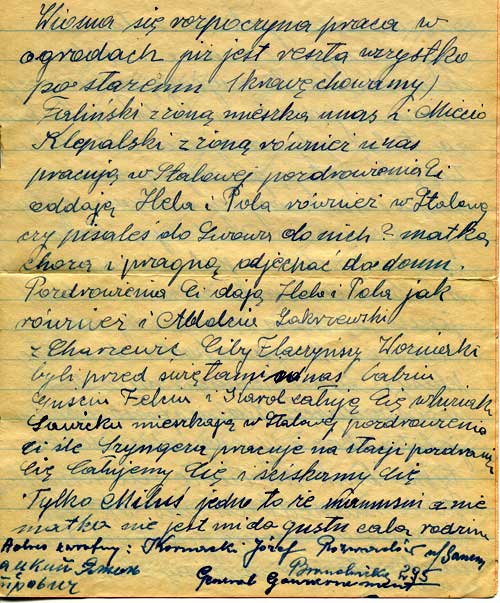 Wiosna się rozpoczyna praca w
ogrodach już jest reszta wszystko
po staremu (krawę chowamy)
Faliński z żoną mieszka u nas i Miecio
Klepalski z żoną również u nas
pracują w Stalowej pozdrowienia Ci
oddają Hela i Pola również w Stalowej
czy pisałeś do Lwowa do nich? matka
chora i pragną odjechać do domu.
Pozdrowienia Ci dają Hela i Pola jak
również i Zakrzewski
z Charzewic Woźniaki
byli przed świętami u nas babcia
Felcia i Karol całują Cię
Sawicku mieszkają w Stalowej pozdrowienia
Ci śle Szyngera pracuje na stacji pozdrawia
Cię Całujemy Cię i ściskamy Cię
Tylko Miluś jedno to że a nie
matka nie jest mi do gustu całą rodziną
Adres zwrotny: Kornacki Józef Rozwadów n/Sanem
295
General Gouvernement